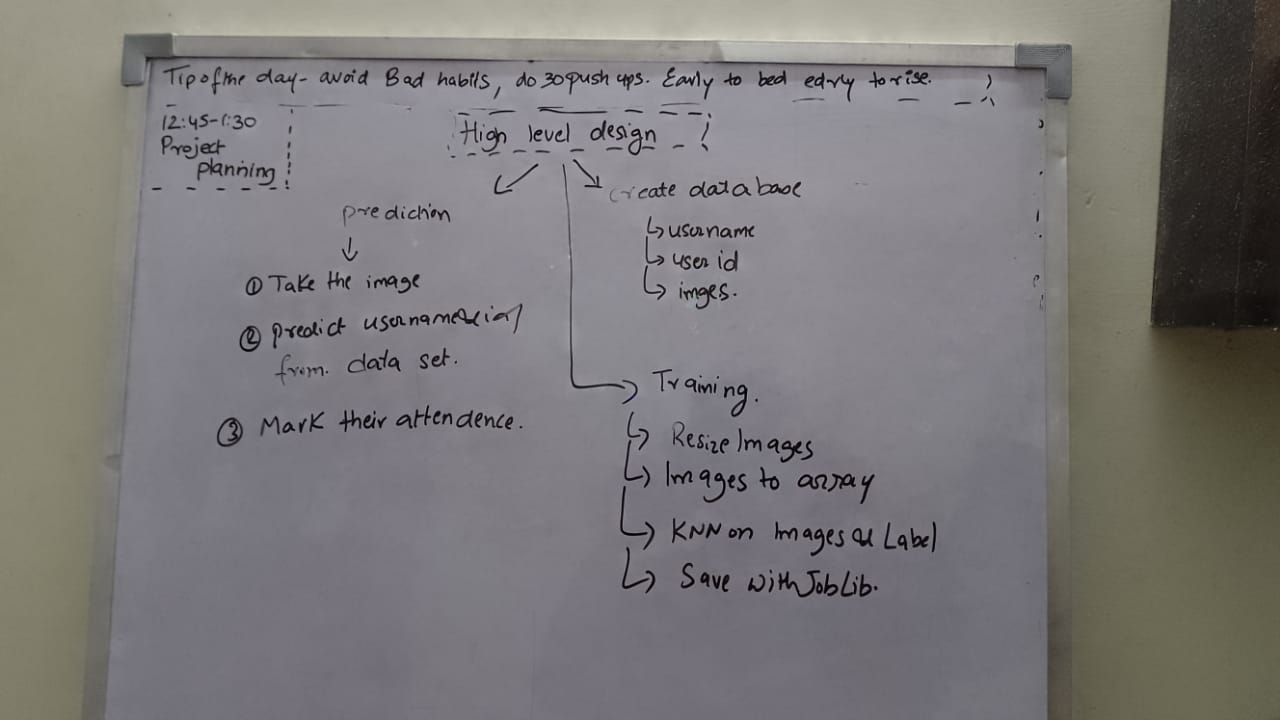 Tip of the day - avoid Bad habits, do 30 push ups. Early to bed early to rise.
12:45-1:30
Project
planning
High level design
prediction
① Take the image
② Predict username & id
from. data set.
③ Mark their attendence.
create database
username
user id
imges.
Training.
Resize Images
Images to array
KNN on Images & Label
Save with JobLib.